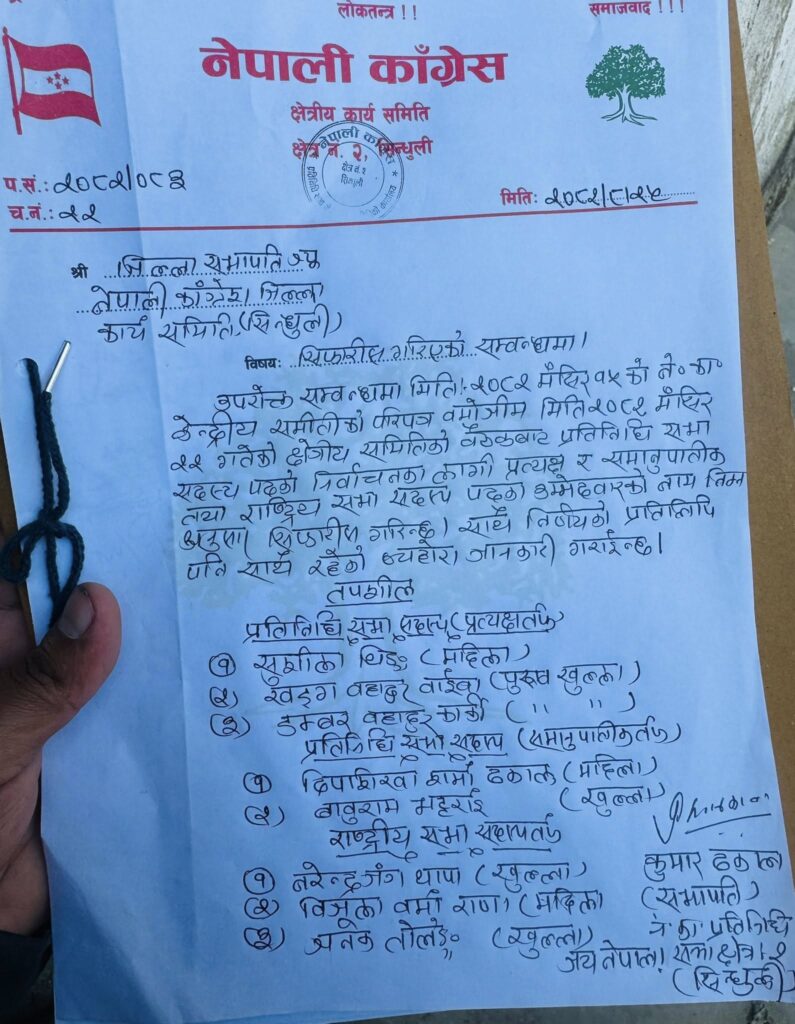 लोकतन्त्र !!
समाजवाद !!!
नेपाली काँग्रेस
क्षेत्रीय कार्य समिति
क्षेत्र नं. २, सिन्धुली
नेपाली काँग्रेस
क्षेत्र नं. २
सिन्धुली
प.सं.: २०८२/०८३
मितिः २०८२/८/२५
च.नं.: २२
श्री जिल्ला सभापति ज्यू
नेपाली काँग्रेस जिल्ला
कार्य समिति, (सिन्धुली)
विषयः सिफारीस गरिएको सम्वन्धमा।
उपरोक्त सम्वन्धमा मिति: २०८२ मँसिर १५ को ने० का०
केन्द्रीय समीतीको परिपत्र वमोजीम मिति २०८२ मँसिर
२२ गतेको क्षेत्रीय समितिको वैठकबाट प्रतिनिधि सभा
सदस्य पदको निर्वाचनका लागी प्रत्यक्ष र समानुपातीक
तथा राष्ट्रिय सभा सदस्य पदका उम्मेदवारको नाम निम्न
अनुसार सिफारीस गरिन्छ। साथै निर्णयको प्रतिलिपि
पनि साथै रहेको व्यहोरा जानकारी गराईन्छ।
तपशील
प्रतिनिधि सभा सदस्य (प्रत्यक्षतर्फ)
(१) सुशीला थिङ (महिला)
(२) खड्ग वहादुर वाईवा (पुरूष खुल्ला)
(३) डम्वर वहादुर कार्की ( " " )
प्रतिनिधि सभा सदस्य (समानुपातीकतर्फ)
(१) दिपाशिखा शर्मा ढकाल (महिला)
(२) वावुराम भट्टराई (खुल्ला)
राष्ट्रीय सभा सदस्यतर्फ
(१) नरेन्द्रजंग थापा (खुल्ला)
(२) विजुला वर्मा राणा (महिला)
(३) जनक तोलङे (खुल्ला)
कुमार ढकाल
(सभापति)
ने का प्रतिनिधि
जय नेपाल! सभा क्षेत्र नं. २
(सिन्धुली)